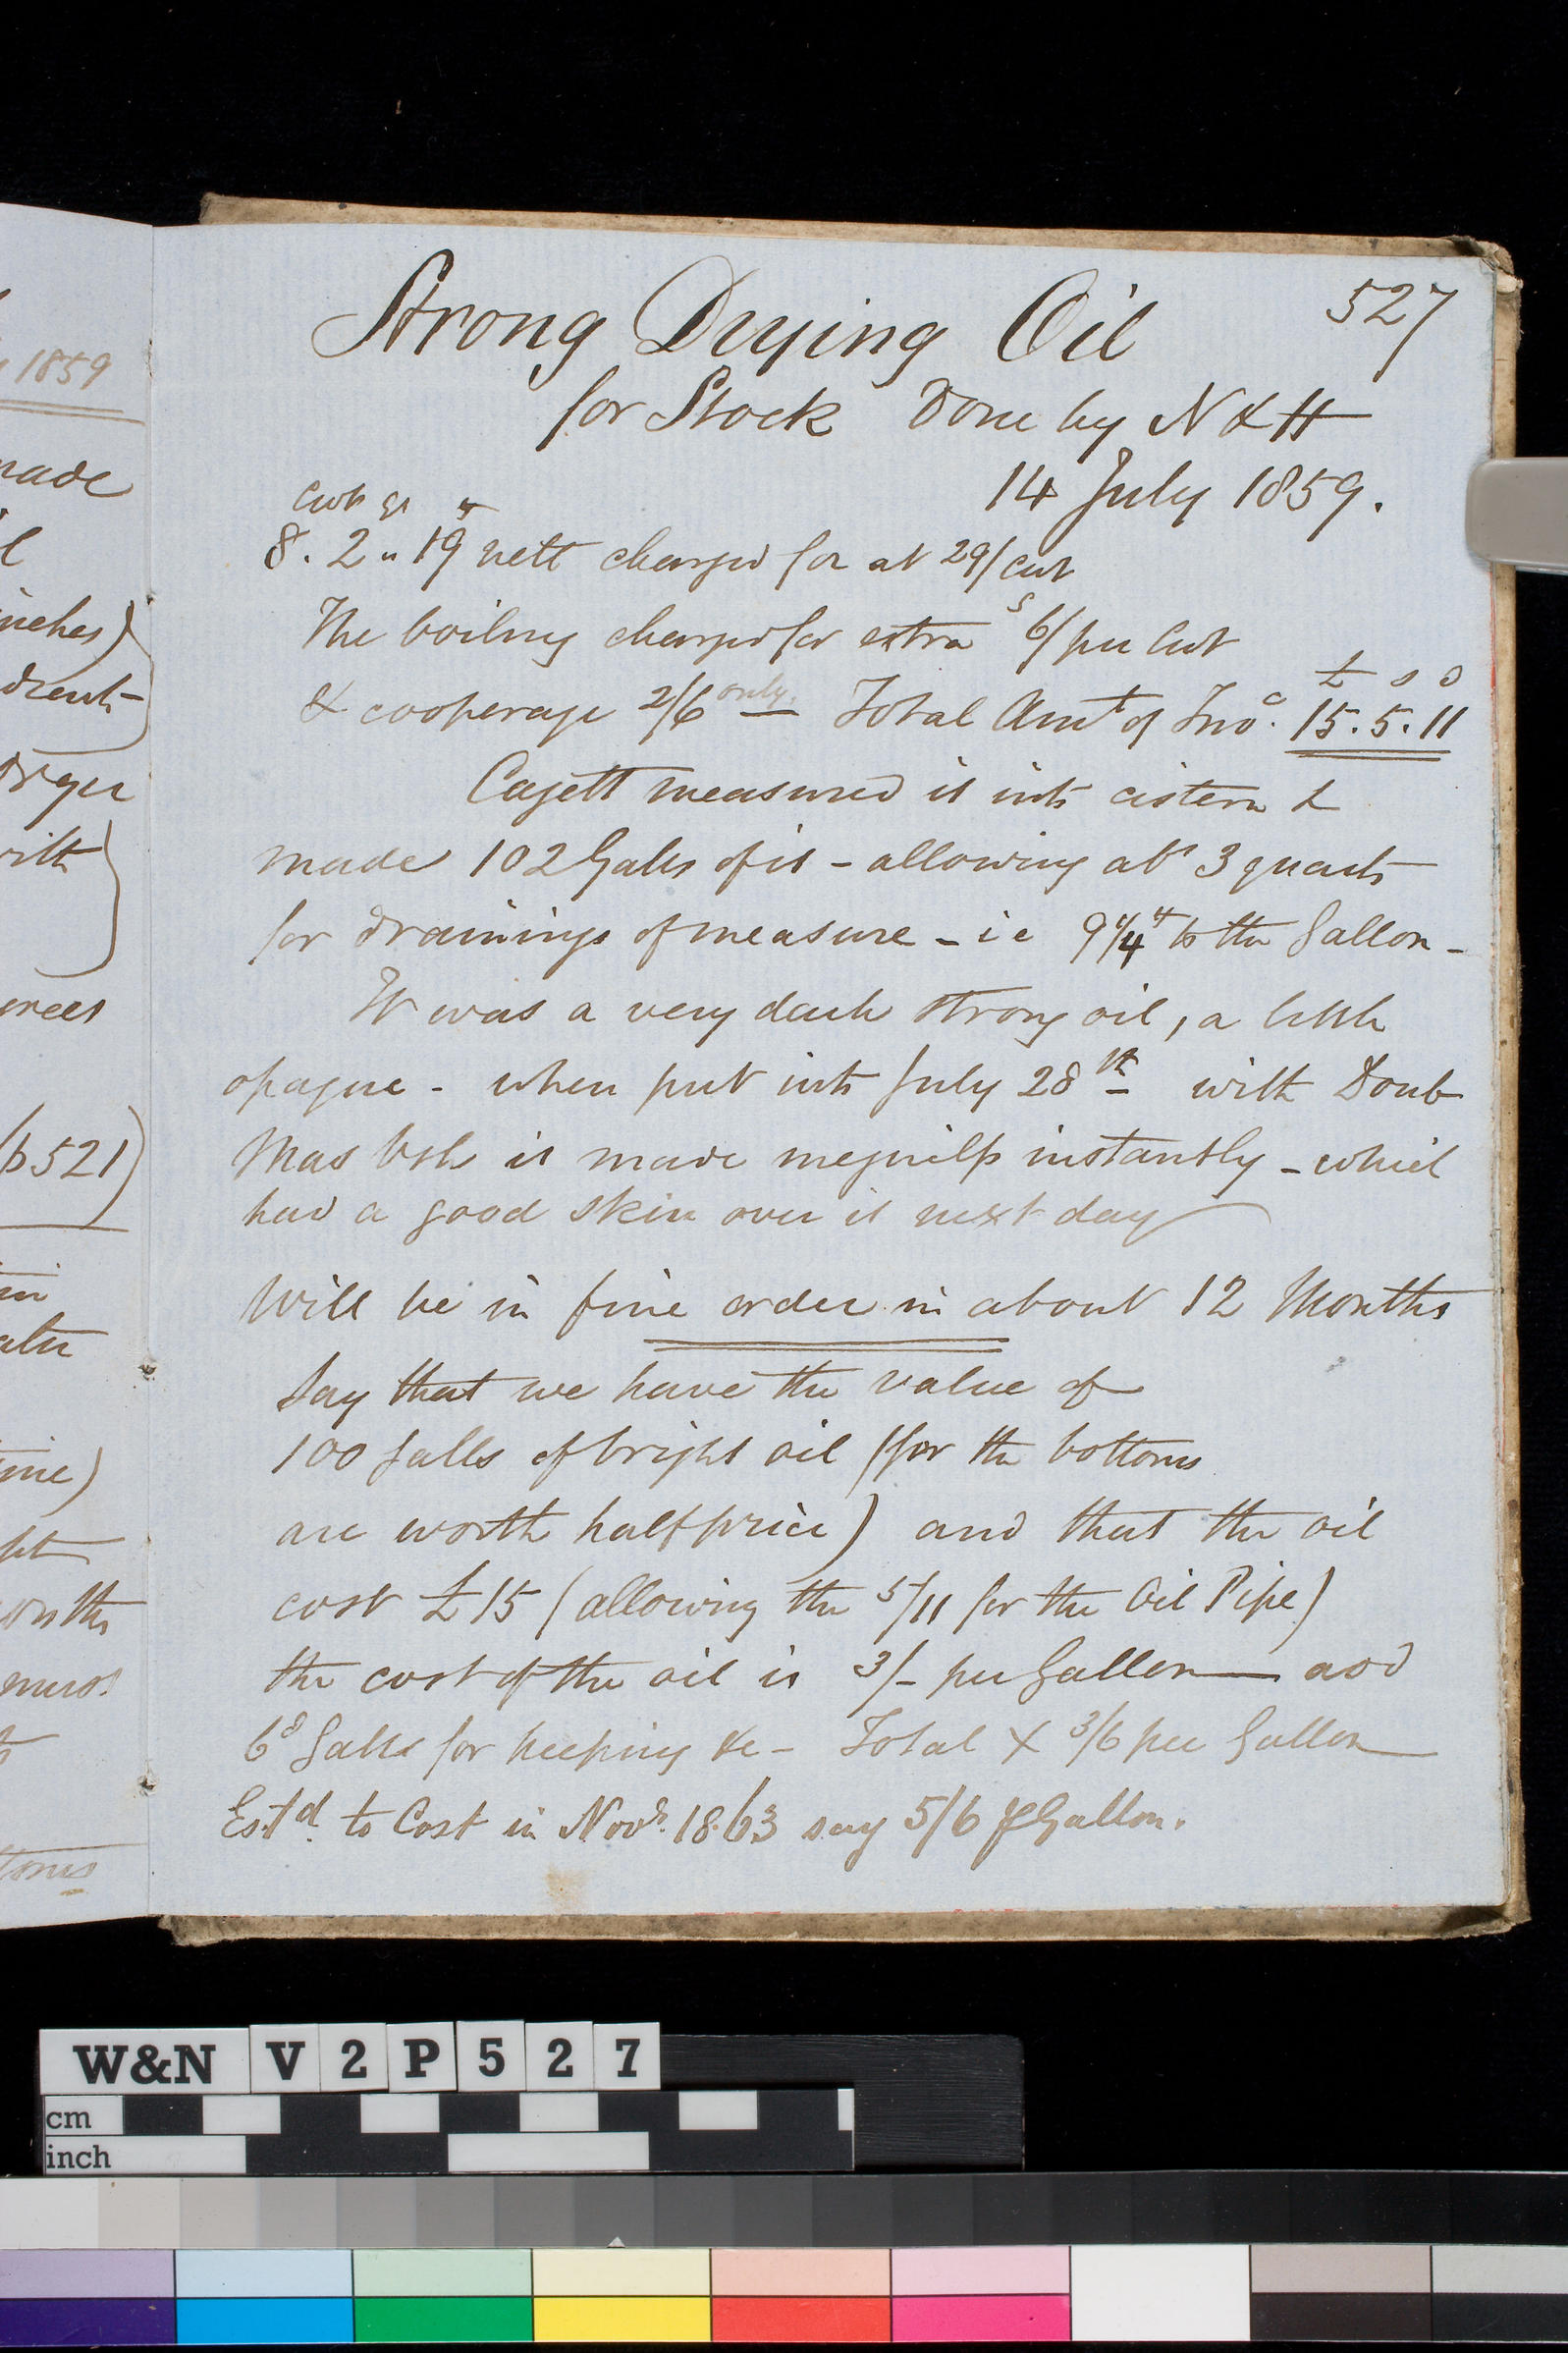 1859
made
inches)
dryer
with
(p521)
months
527
Strong Drying Oil
for Stock Done by N & H
14 July 1859.
cwt qr lb
8. 2 " 19 nett charged for at 29/ cwt
The boiling charged for extra s 6/ per Cwt
& cooperage 2/6 only. Total Amt of Invo. £ s d 15. 5. 11
measured it into cistern &
made 102 Galls of it - allowing abt 3 quarts
for drainings of measure - ie 9 1/4 lb to the Gallon -
It was a very dark strong oil, a little
opaque - when put into July 28th with Doub
Mas Vsh it made meguilp instantly - which
had a good skin over it next day
Will be in fine order in about 12 Months
Say that we have the value of
100 galls of bright oil (for the bottoms
are worth half price) and that the oil
cost £15 (allowing the 5/11 for the Oil Pipe)
the cost of the oil is 3/- per Gallon add
6d Galls for keeping &c - Total X 3/6 per Gallon
Estd. to Cost in Novr. 1863 say 5/6 ⅌ Gallon.
W&N V 2 P 5 2 7
cm
inch